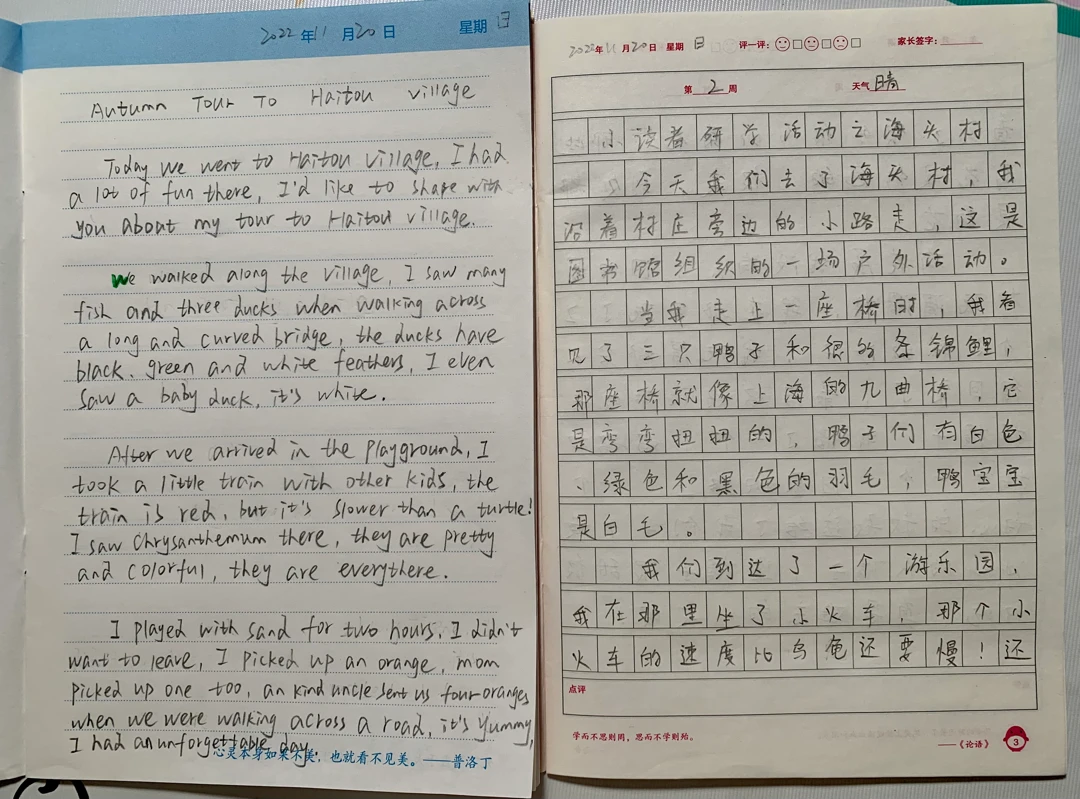 2022年11月20日 星期日
Autumn Tour To Haitou village
Today we went to Haitou village, I had
a lot of fun there, I'd like to share with
you about my tour to Haitou village.
We walked along the village, I saw many
fish and three ducks when walking across
a long and curved bridge, the ducks have
black、green and white feathers, I even
saw a baby duck, it's white.
After we arrived in the playground, I
took a little train with other kids, the
train is red, but it's slower than a turtle!
I saw Chrysanthemum there, they are pretty
and colorful, they are everythere.
I played with sand for two hours, I didn't
want to leave, I picked up an orange, mom
picked up one too, an kind uncle sent us four oranges
when we were walking across a road, it's yummy,
I had an unforgettable day.
心灵本身如果不美，也就看不见美。——普洛丁
2022年11月20日 星期日 评一评： 家长签字：
第2周 天气晴
小读者研学活动之海头村
今天我们去了海头村，我
沿着村庄旁边的小路走，这是
图书馆组织的一场户外活动。
当我走上一座桥时，我看
见了三只鸭子和很多条锦鲤，
那座桥就像上海的九曲桥，它
是弯弯扭扭的，鸭子们有白色
、绿色和黑色的羽毛，鸭宝宝
是白毛。
我们到达了一个游乐园，
我在那里坐了小火车，那个小
火车的速度比乌龟还要慢！还
点评
学而不思则罔，思而不学则殆。
——《论语》
3